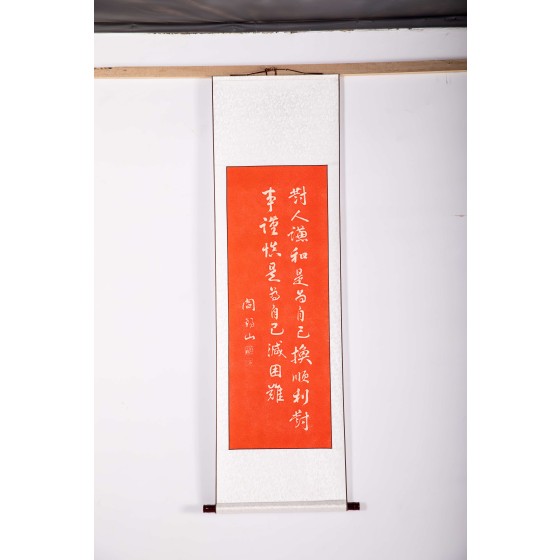 對人謙和是為自己換順利對
事謹慎是為自己減困難
閻錫山